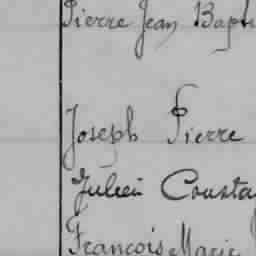 Pierre Jean Bapt
Joseph Pierre
Julien Consta
François Marie